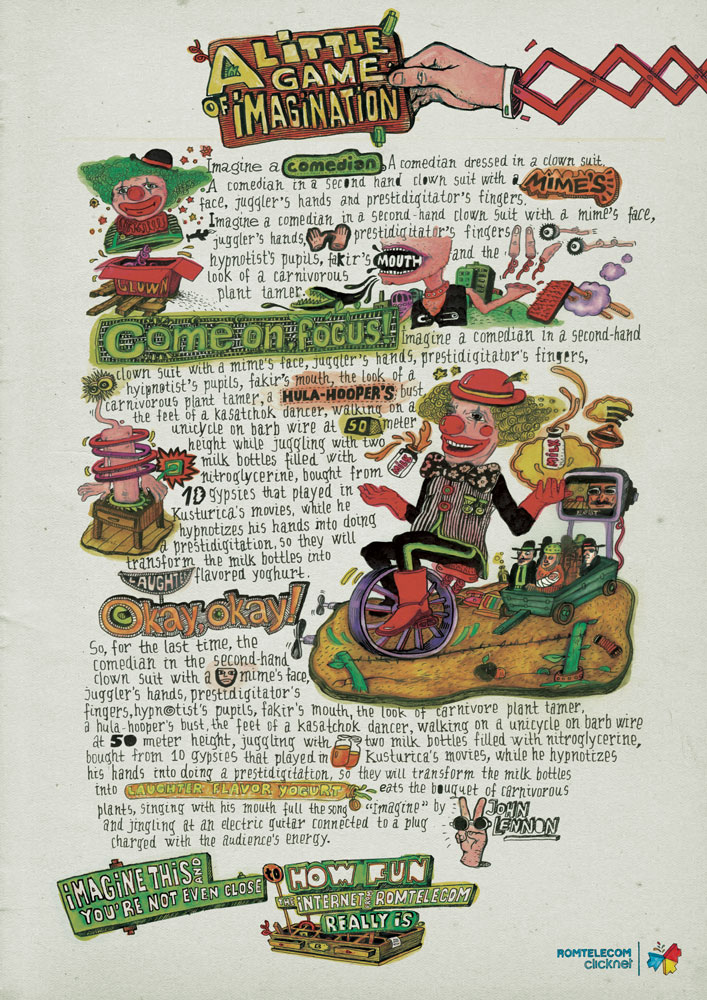 A LITTLE
GAME
OF IMAGINATION
Imagine a comedian. A comedian dressed in a clown suit.
A comedian in a second hand clown suit with a MIME'S
face, juggler's hands and prestidigitator's fingers.
Imagine a comedian in a second-hand clown suit with a mime's face,
juggler's hands, prestidigitator's fingers
hypnotist's pupils, fakir's MOUTH and the
look of a carnivorous
plant tamer.
CLOWN
Come on, focus! Imagine a comedian in a second-hand
clown suit with a mime's face, juggler's hands, prestidigitator's fingers,
hyipnotist's pupils, fakir's mouth, the look of a
carnivorous plant tamer, a HULA-HOOPER'S bust
the feet of a kasatchok dancer, walking on a
unicycle on barb wire at 50 meter
height while juggling with two
milk bottles filled with
nitroglycerine, bought from
10 gypsies that played in
Kusturica's movies, while he
hypnotizes his hands into doing
a prestidigitation, so they will
transform the milk bottles into
LAUGHTER flavored yoghurt.
MILK
MILK
Okay, okay!
So, for the last time, the
comedian in the second-hand
clown suit with a mime's face,
juggler's hands, prestidigitator's
fingers, hypnotist's pupils, fakir's mouth, the look of carnivore plant tamer,
a hula-hooper's bust, the feet of a kasatchok dancer, walking on a unicycle on barb wire
at 50 meter height, juggling with two milk bottles filled with nitroglycerine,
bought from 10 gypsies that played in Kusturica's movies, while he hypnotizes
his hands into doing a prestidigitation, so they will transform the milk bottles
into LAUGHTER FLAVOR YOGURT eats the bouquet of carnivorous
plants, singing with his mouth full the song "Imagine" by JOHN
LENNON
and jingling at an electric guitar connected to a plug
charged with the audience's energy.
IMAGINE THIS AND
YOU'RE NOT EVEN CLOSE
to HOW FUN
THE INTERNET FROM ROMTELECOM
REALLY IS
ROMTELECOM
clicknet